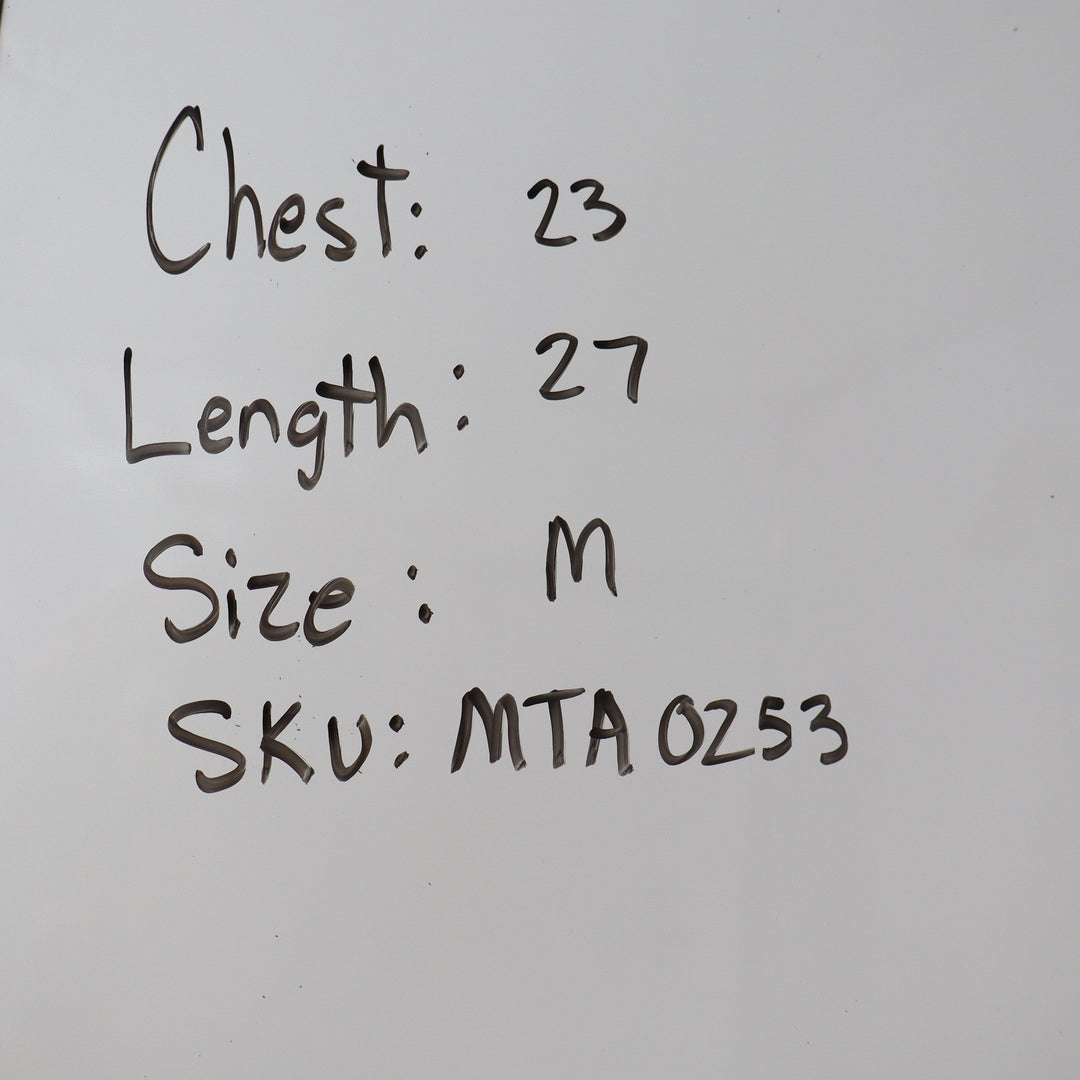 Chest: 23
Length: 27
Size: M
SKU: MTA0253